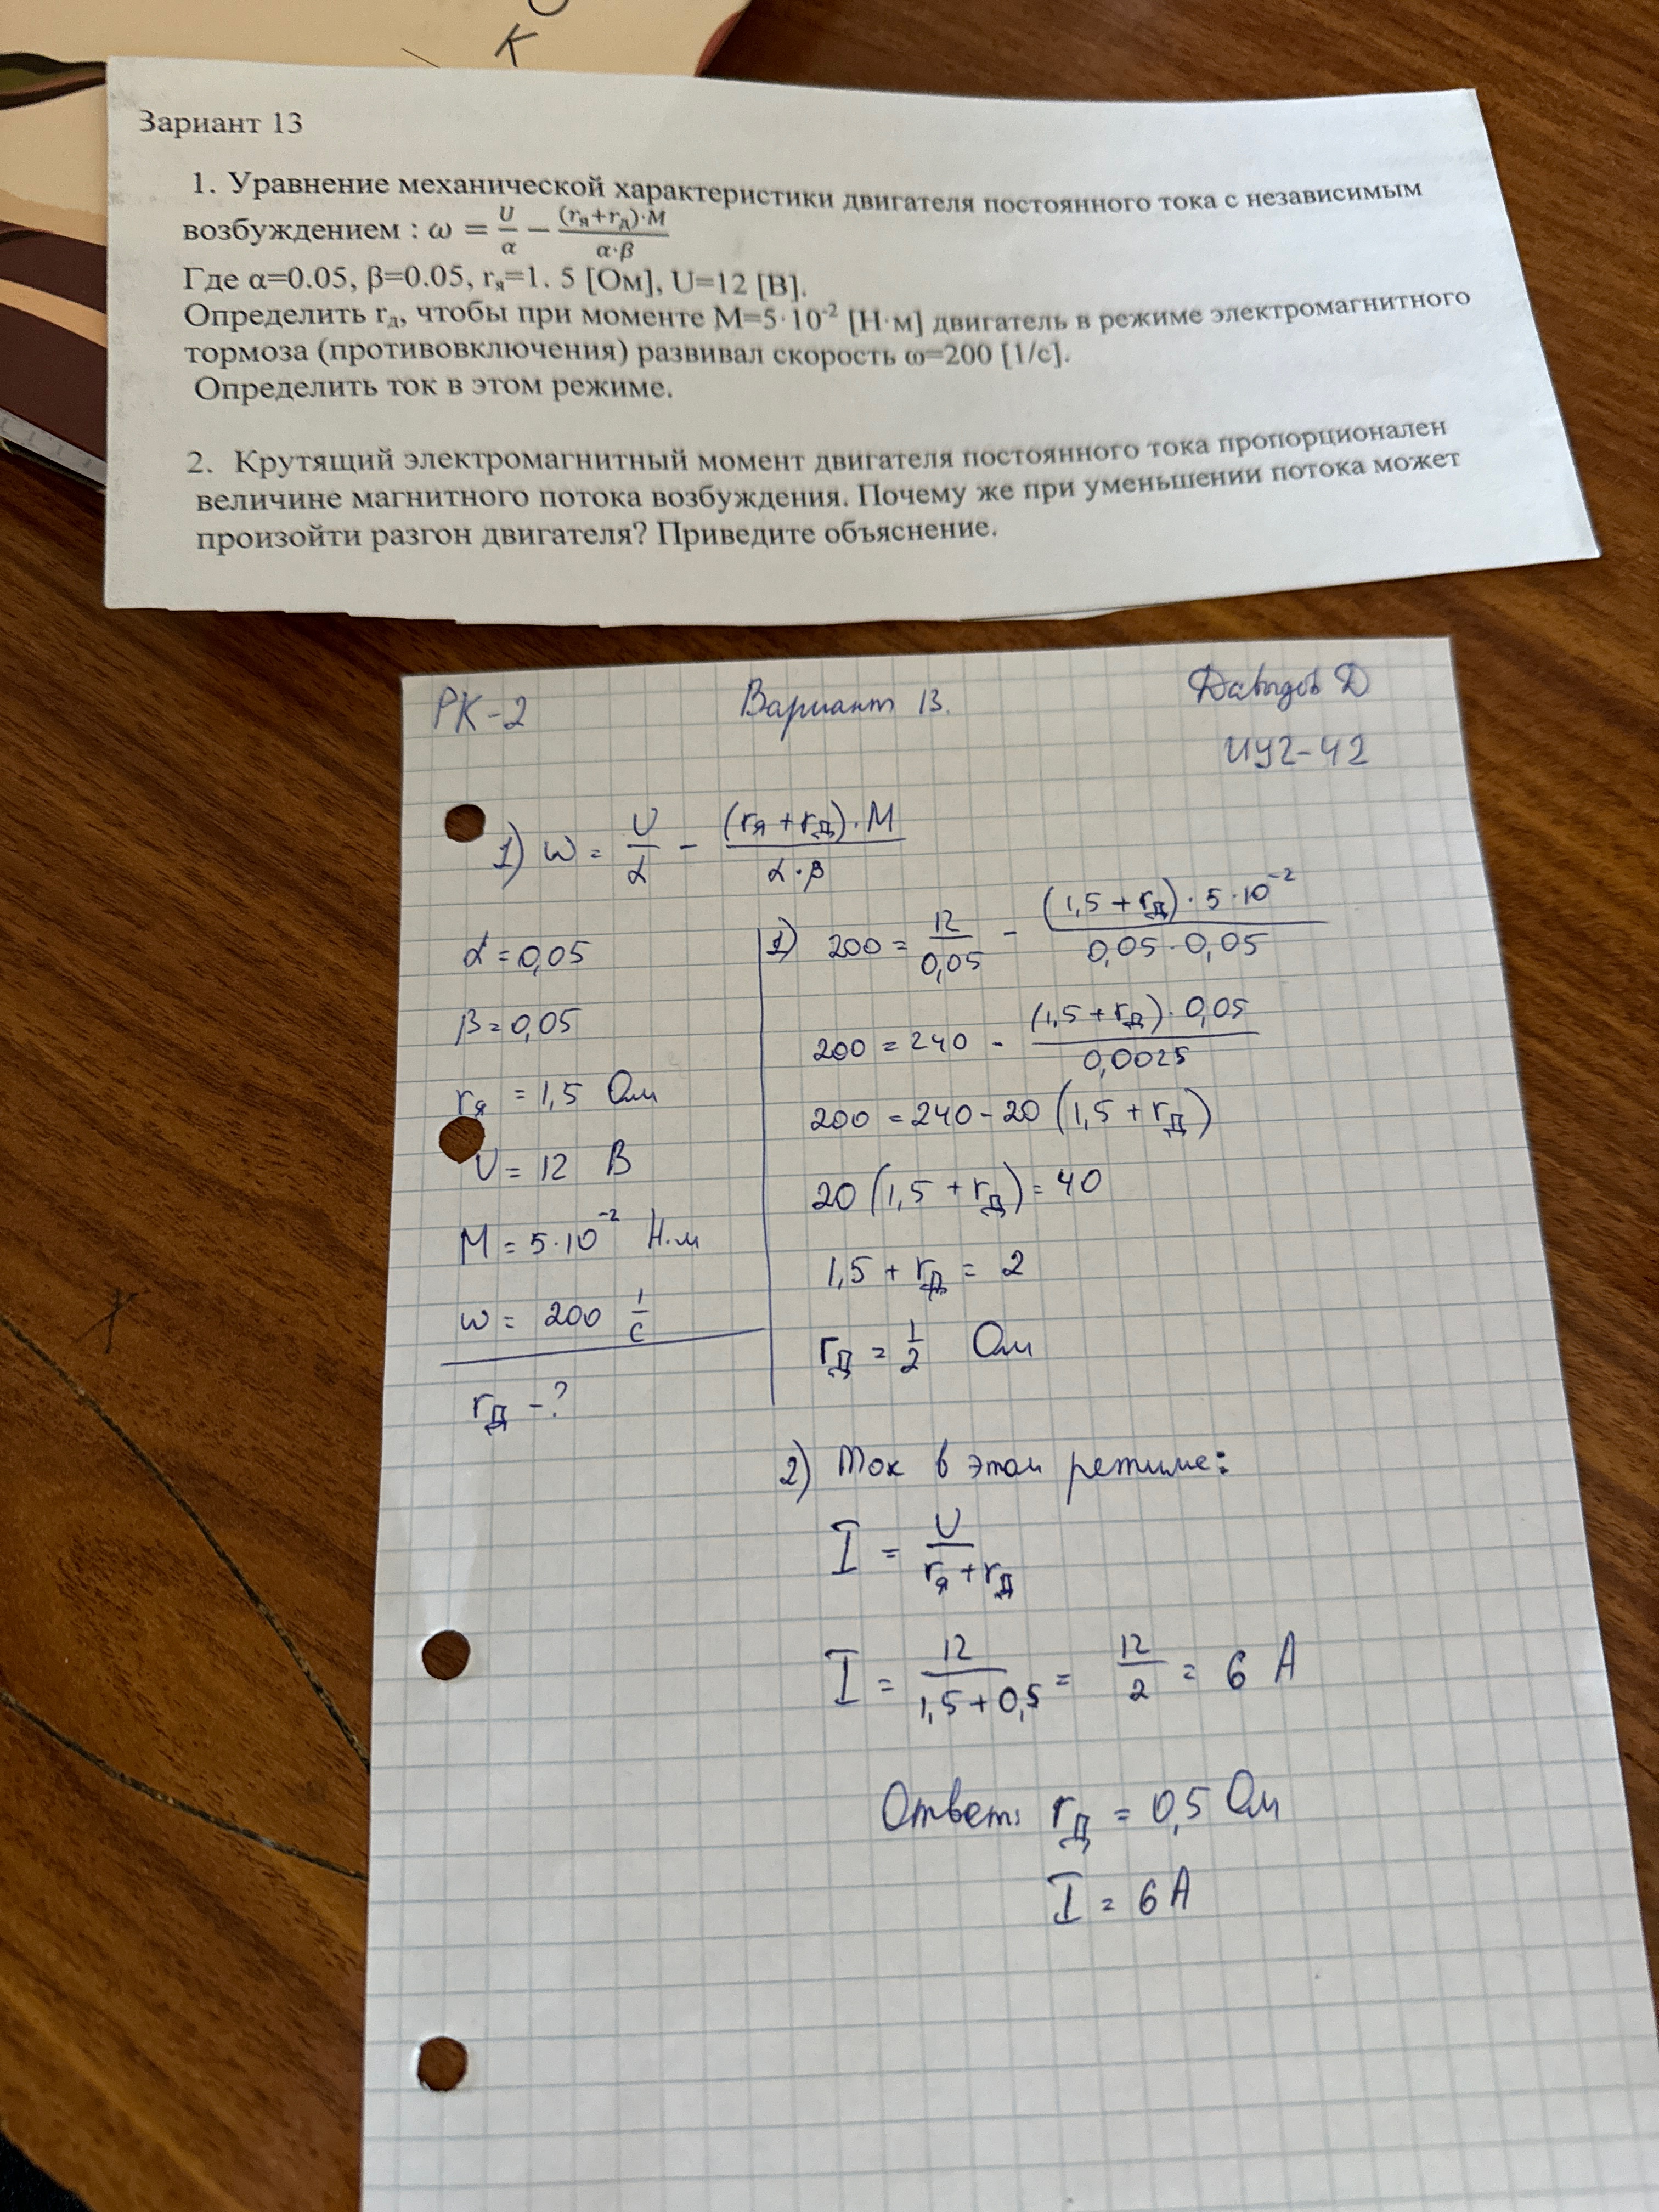 К
Вариант 13
1. Уравнение механической характеристики двигателя постоянного тока с независимым
возбуждением : ω = U/α − (rя+rд)·M/α·β
Где α=0.05, β=0.05, rя=1. 5 [Ом], U=12 [В].
Определить rд, чтобы при моменте М=5·10⁻² [Н·м] двигатель в режиме электромагнитного
тормоза (противовключения) развивал скорость ω=200 [1/с].
Определить ток в этом режиме.
2. Крутящий электромагнитный момент двигателя постоянного тока пропорционален
величине магнитного потока возбуждения. Почему же при уменьшении потока может
произойти разгон двигателя? Приведите объяснение.
РК-2 Вариант 13. Давыдов Д
ИУ2-42
1) ω = U/α - (rя + rд)·M/α·β
α = 0,05
β = 0,05
rя = 1,5 Ом
U = 12 В
M = 5·10⁻² Н·м
ω = 200 1/с
rд - ?
1) 200 = 12/0,05 - (1,5 + rд)·5·10⁻²/0,05·0,05
200 = 240 - (1,5 + rд)·0,05/0,0025
200 = 240 - 20 (1,5 + rд)
20 (1,5 + rд) = 40
1,5 + rд = 2
rд = 1/2 Ом
2) Ток в этом режиме:
I = U/rя + rд
I = 12/1,5 + 0,5 = 12/2 = 6 А
Ответ: rд = 0,5 Ом
I = 6 А